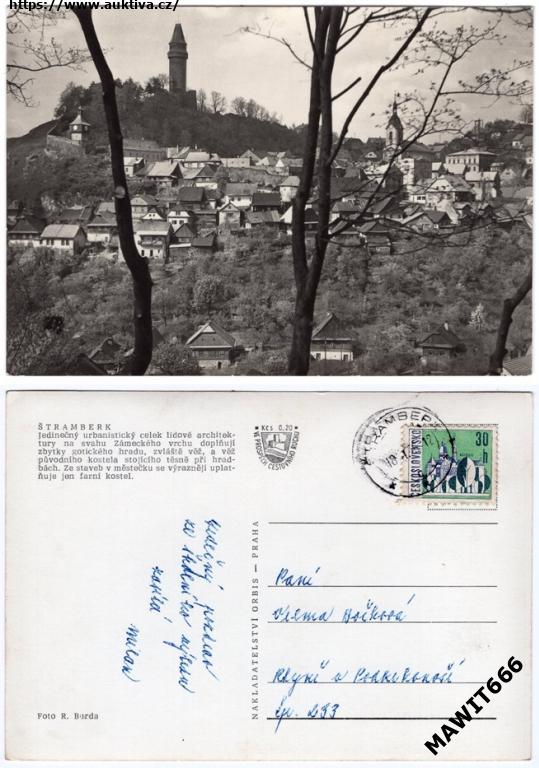 https://www.auktiva.cz/
ŠTRAMBERK
Jedinečný urbanistický celek lidové architek-
tury na svahu Zámeckého vrchu doplňují
zbytky gotického hradu, zvláště věž, a věž
původního kostela stojícího těsně při hrad-
bách. Ze staveb v městečku se výrazněji uplat-
ňuje jen farní kostel.
Kčs 0,20
VE PROSPĚCH CESTOVNÍHO RUCHU
ŠTRAMBERK
30
h
ČESKOSLOVENSKO
srdečný pozdrav
ze školního výletu
zasílá
Milan
NAKLADATELSTVÍ ORBIS — PRAHA
Paní
Bočková
v Podkrkonoší
čp. 233
Foto R. Burda
MAWIT666